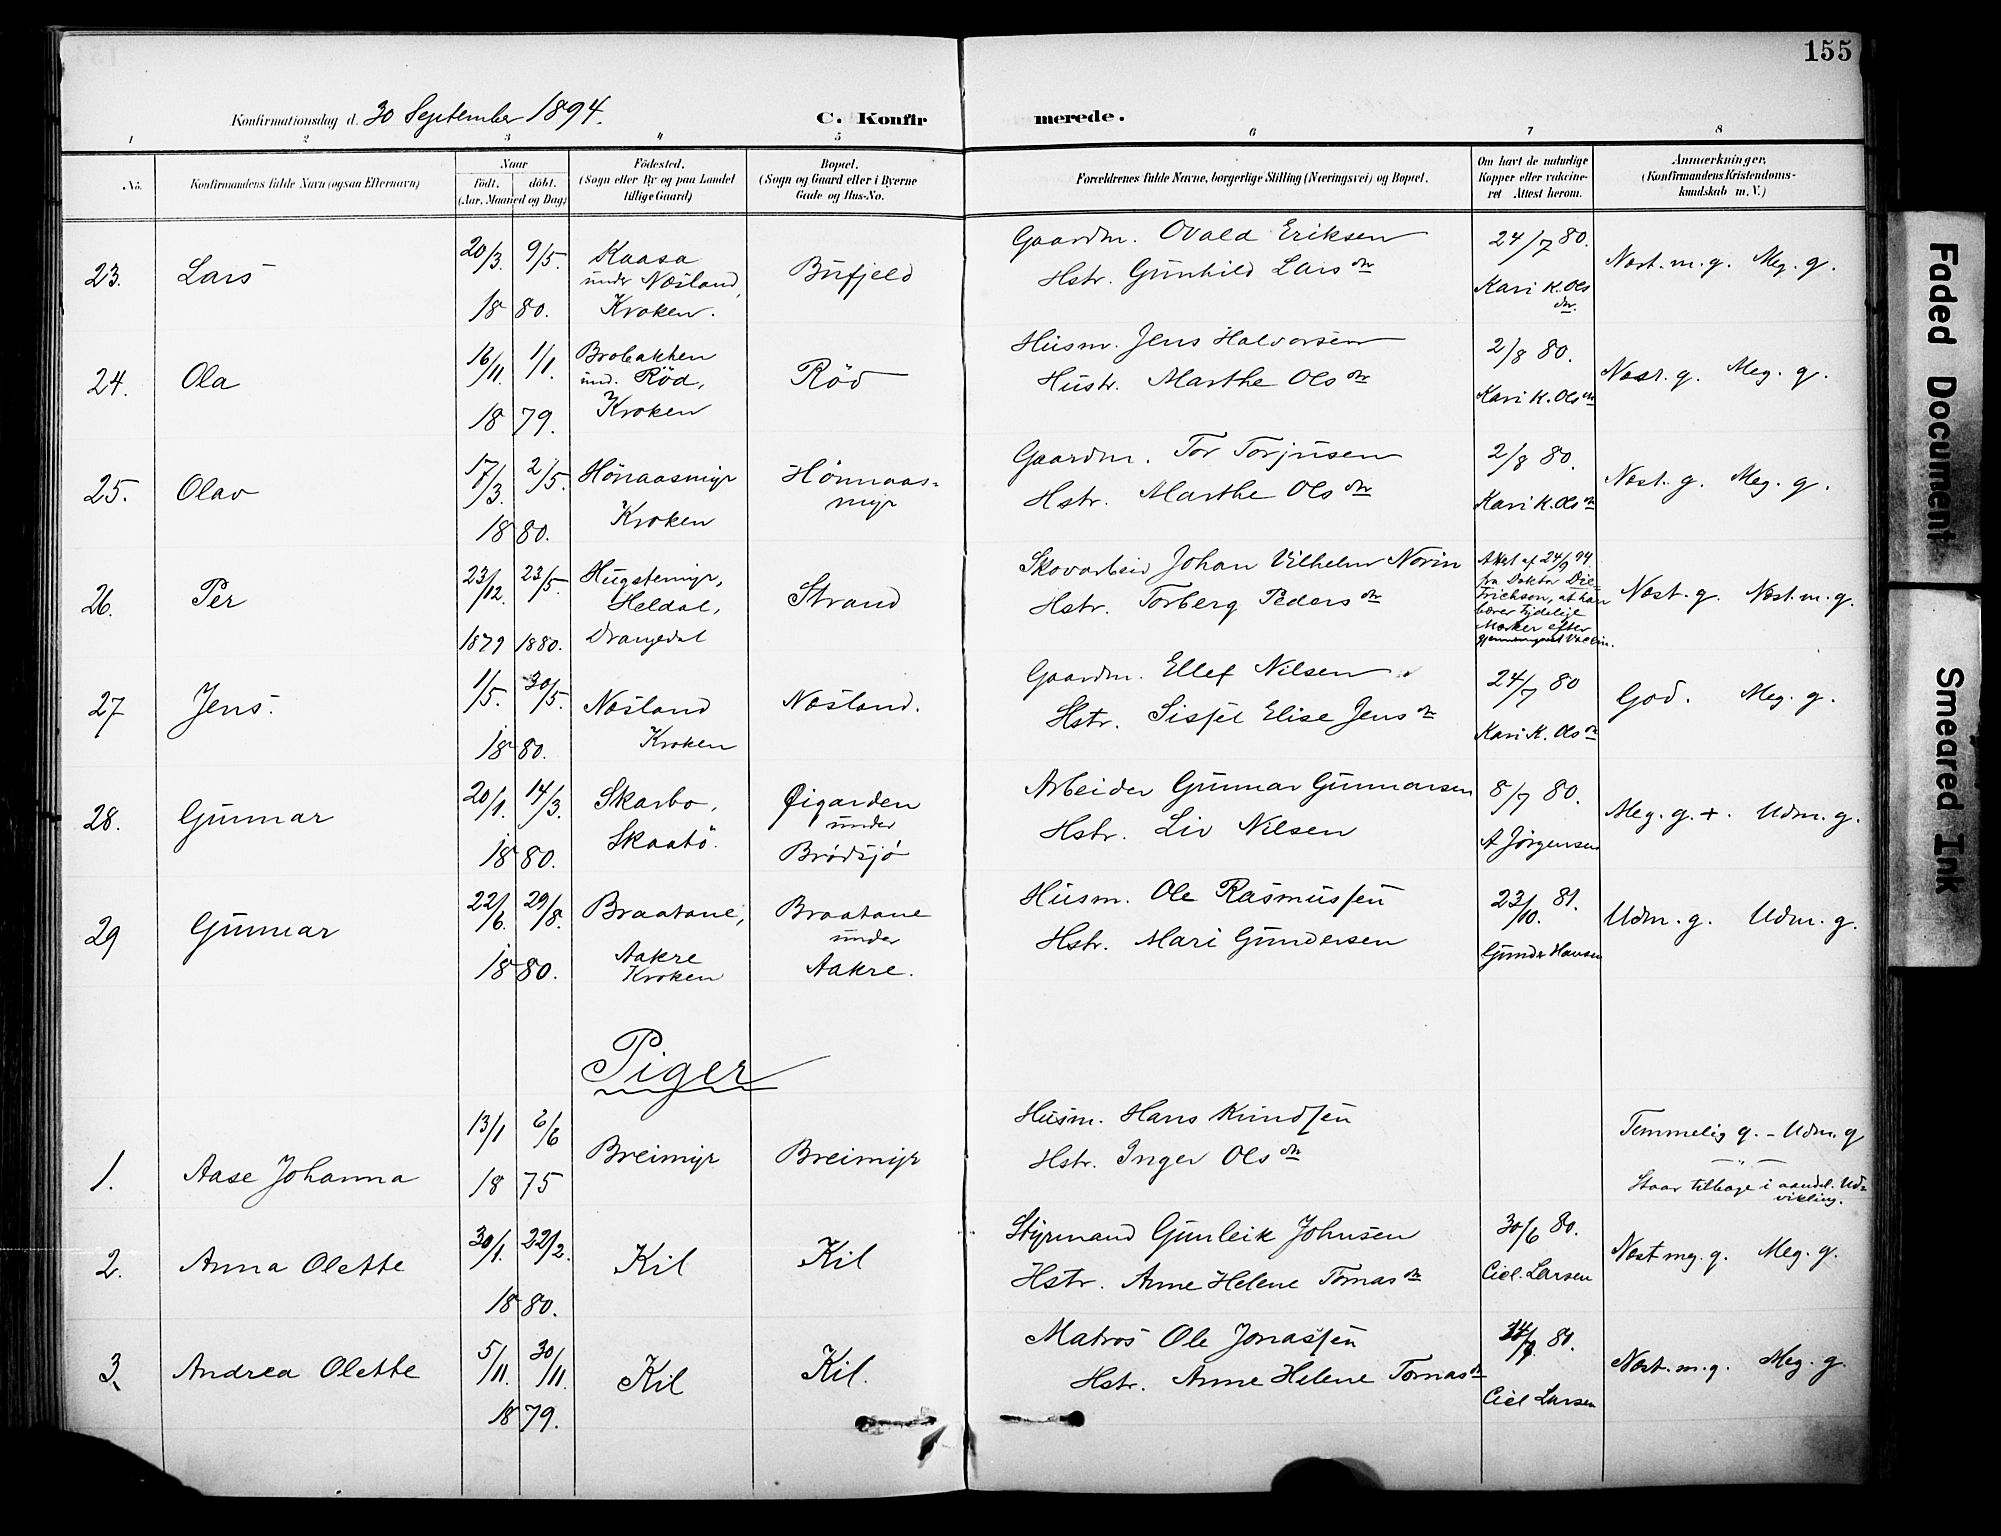 155
Konfirmationsdag d. 30 September 1894. C. Konfirmerede.
1 2 3 4 5 6 7 8
No. Konfirmandens fulde Navn (ogsaa Efternavn) Naar födt. döbt. (Aar, Maaned og Dag) Födested. (Sogn eller By og paa Landet tillige Gaard) Bopæl. (Sogn og Gaard eller i Byerne Gade og Hus-No. Forældrenes fulde Navne, borgerlige Stilling (Næringsvei) og Bopæl. Om havt de naturlige Kopper eller vakcineret Attest herom. Anmærkninger. (Konfirmandens Kristendomskundskab m. V.)
23. Lars 20/3. 9/5. 1880. Kaasa under Næsland, Kroken. Bufjeld Gaardm. Ovald Eriksen Hstr. Gunhild Larsdtr 24/7 80. Kari K. Olsdtr. Næst. m. g. Meg. g.
24. Ola 16/11. 1/1. 1879. Brobakken und. Röd, Kroken Röd Husm. Jens Halvorsen Hustr. Marthe Olsdtr 2/8 80. Kari K. Olsdtr Næst. g. Meg. g.
25. Olav 17/3. 2/5. 1880. Hönaasmyr Kroken Hönnaasmyr Gaardm. Tor Torjusen Hstr. Marthe Olsdtr 2/8 80. Kari K. Olsdtr Næst. g. Meg. g.
26. Per 23/12. 23/5. 1879 1880. Hugstemyr, Heldal, Drangedal Strand Skovarbeid Johan Vilhelm Norin Hstr. Torberg Pedersdtr Attest af 24/9 94. fra Doktor Die- trichson, at han bærer tydelige Mærker efter gjennemgaaet Vaccin. Næst. g. Næst. m. g.
27 Jens. 1/5. 30/5. 1880. Næsland Kroken Næsland. Gaardm. Ellef Nilsen Hstr. Sissel Elise Jensdtr 24/7 80 Kari K. Olsdtr God. Meg. g.
28. Gunnar 20/1. 14/3. 1880. Skarbo, Skaatö. Øigarden under Brödsjö Arbeider Gunnar Gunnarsen Hstr. Liv Nilsen 8/7 80. A Jörgensen Meg. g. +. Udm. g.
29 Gunnar 22/6. 29/8. 1880. Braatane, Aakre Kroken Braatane under Aakre. Husm. Ole Rasmussen Hstr. Mari Gundersen 23/10. 81. Gunder Hansen Udm. g. Udm. g.
Piger
1. Aase Johanna 13/1 6/6 1875 Breimyr Breimyr Husm. Hans Knudsen Hstr. Inger Olsdtr Temmelig g. - Udm. g Staar tilbage i aandel. Ud- vikling.
2. Anna Olette 30/1. 22/2. 1880. Kil Kil Styrmand Gunleik Johnsen Hstr. Anne Helene Tomasdtr 30/6 80. Ciel. Larsen Næst meg. g. Meg. g.
3. Andrea Olette 5/11. 30/11. 1879. Kil Kil. Matros Ole Jonassen Hstr. Anne Helene Tomasdtr Ciel Larsen Næst. m. g. Meg. g.
Faded Document
Smeared Ink